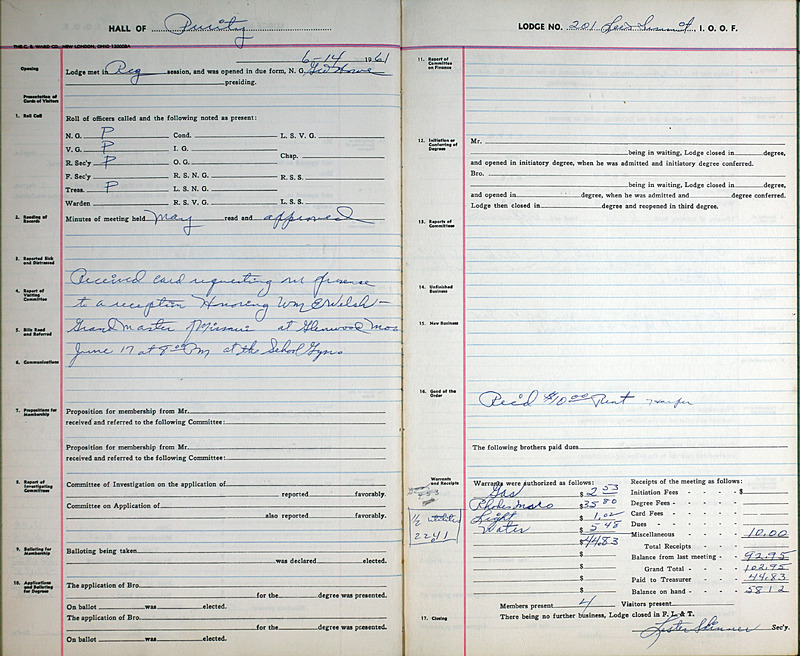 HALL OF Purity
THE C. E. WARD CO., NEW LONDON, OHIO
6-14 1961
Opening
Lodge met in Reg session, and was opened in due form, N. G. Geo Howe
presiding.
Presentation of Cards of Visitors
1. Roll Call
Roll of officers called and the following noted as present:
N. G. P Cond. L. S. V. G.
V. G. P I. G.
Chap.
R. Sec'y P O. G.
F. Sec'y R. S. N. G. R. S. S.
Treas. P L. S. N. G.
Warden R. S. V. G. L. S. S.
2. Reading of Records
Minutes of meeting held May read and approved
3. Reported Sick and Distressed
Received card requesting our presense
4. Report of Visiting Committee
to a reception Honoring Wm E Welsh -
Grand Master of Missouri at Glenwood Mo
5. Bills Read and Referred
June 17 at 8:00 PM at the School Gym
6. Communications
7. Propositions for Membership
Proposition for membership from Mr.
received and referred to the following Committee:
Proposition for membership from Mr.
received and referred to the following Committee:
8. Report of Investigating Committees
Committee of Investigation on the application of
reported favorably.
Committee on Application of
also reported favorably.
9. Balloting for Membership
Balloting being taken
was declared elected.
10. Applications and Balloting for Degrees
The application of Bro.
for the degree was presented.
On ballot was elected.
The application of Bro.
for the degree was presented.
On ballot was elected.
LODGE NO. 201 Lees Summit, I. O. O. F.
11. Report of Committee on Finance
12. Initiation or Conferring of Degrees
Mr.
being in waiting, Lodge closed in degree,
and opened in initiatory degree, when he was admitted and initiatory degree conferred.
Bro.
being in waiting, Lodge closed in degree,
and opened in degree, when he was admitted and degree conferred.
Lodge then closed in degree and reopened in third degree.
13. Reports of Committees
14. Unfinished Business
15. New Business
16. Good of the Order
Rec'd $10.00 Rent
The following brothers paid dues
Warrants and Receipts
Warrants were authorized as follows:
Gas $ 2 53
$ 35 80
Light $ 1.02
Water $ 5 48
$ 44.83
1/2 utilities
2241
Receipts of the meeting as follows:
Initiation Fees - - - - - $
Degree Fees - - - - -
Card Fees - - - - -
Dues - - - - -
Miscellaneous - - - - - 10.00
Total Receipts - - - -
Balance from last meeting - - 92.95
Grand Total - - - - 102.95
Paid to Treasurer - - - - 44.83
Balance on hand - - - - 58 12
Members present 4 Visitors present
17. Closing
There being no further business, Lodge closed in F. L. & T.
Lester Skinner Sec'y.